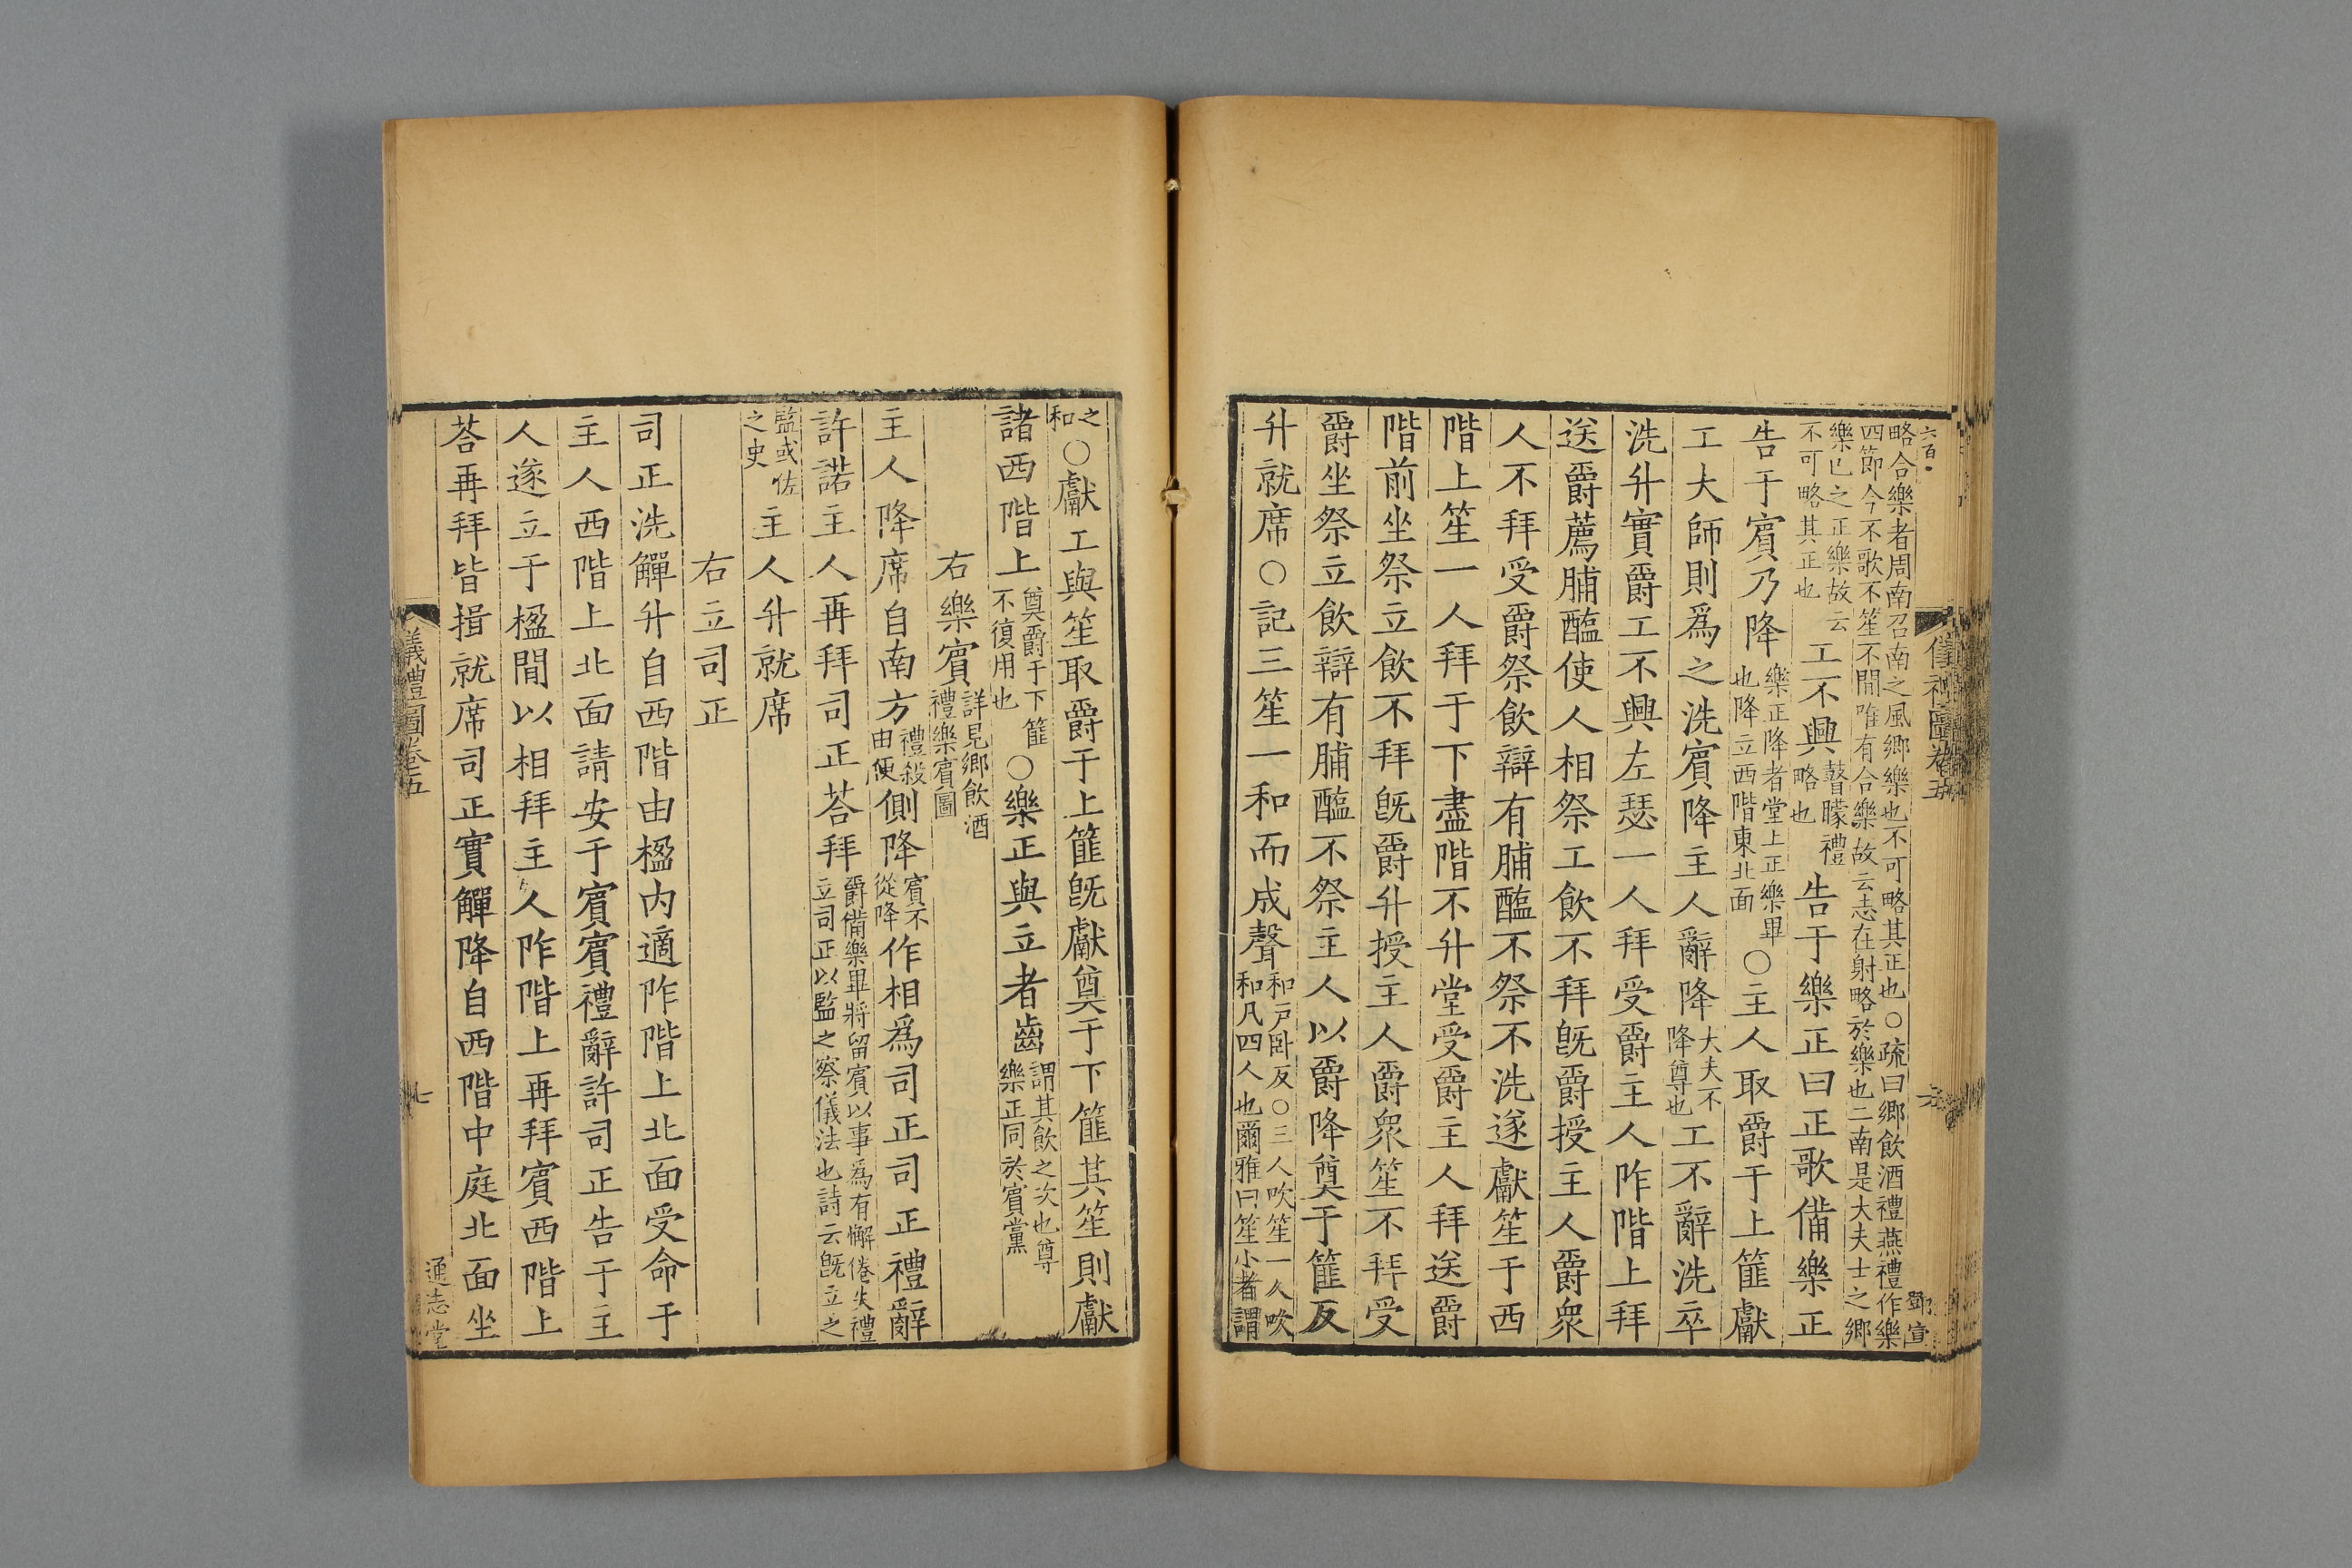 略合樂者周南召南之風鄉樂也不可略其正也○疏曰鄉飲酒禮燕禮作樂
四節今不歌不笙不閒唯有合樂故云志在射略於樂也二南是大夫士之鄉
樂已之正樂故云
不可略其正也
工不興
瞽矇禮
略也
告于樂正曰正歌備樂正
告于賓乃降
樂正降者堂上正樂畢
也降立西階東北面
○主人取爵于上篚獻
工大師則爲之洗賓降主人辭降
大夫不
降尊也
工不辭洗卒
洗升實爵工不興左瑟一人拜受爵主人阼階上拜
送爵薦脯醢使人相祭工飲不拜旣爵授主人爵衆
人不拜受爵祭飲辯有脯醢不祭不洗遂獻笙于西
階上笙一人拜于下盡階不升堂受爵主人拜送爵
階前坐祭立飲不拜旣爵升授主人爵衆笙不拜受
爵坐祭立飲辯有脯醢不祭主人以爵降奠于篚反
升就席○記三笙一和而成聲
和戸卧反○三人吹笙一人吹
和凡四人也爾雅曰笙小者謂
之
和
○獻工與笙取爵于上篚旣獻奠于下篚其笙則獻
諸西階上
奠爵于下篚
不復用也
○樂正與立者齒
謂其飲之次也尊
樂正同於賓黨
右樂賓
詳見鄉飲酒
禮樂賓圖
主人降席自南方
禮殺
由便
側降
賓不
從降
作相爲司正司正禮辭
許諾主人再拜司正荅拜
爵備樂畢將留賓以事爲有懈倦失禮
立司正以監之察儀法也詩云旣立之
監或佐
之史
主人升就席
右立司正
司正洗觶升自西階由楹内適阼階上北面受命于
主人西階上北面請安于賓賓禮辭許司正告于主
人遂立于楹閒以相拜主人阼階上再拜賓西階上
荅再拜皆揖就席司正實觶降自西階中庭北面坐
儀禮圖卷五
七
通志堂